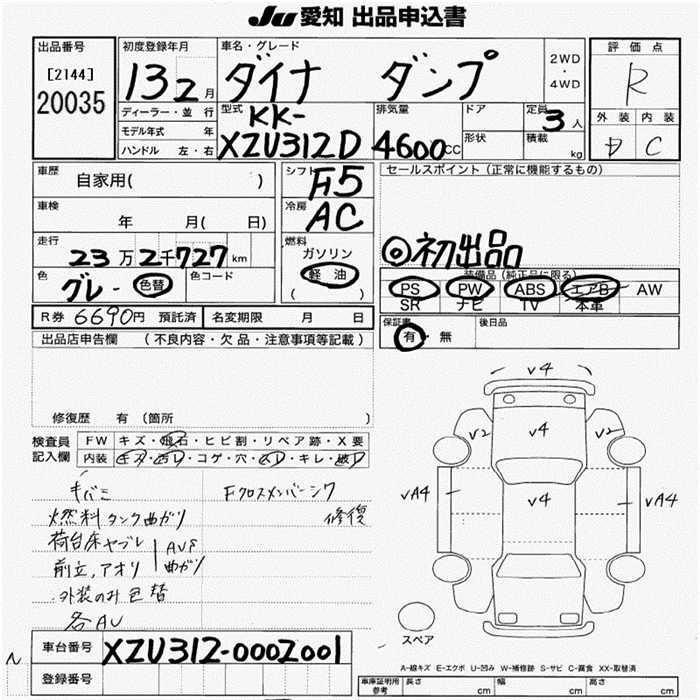 JU 愛知 出品申込書
出品番号
[2144]
20035
初度登録年月
13 2月
車名・グレード
ダイナ ダンプ
2WD
・
4WD
評価点
R
ディーラー・並 行
モデル年式 年
ハンドル 左・右
型式
KK-
XZU312D
排気量
4600cc
ドア
形状
定員
3人
積載
kg
外装 内装
D C
車歴
自家用( )
シフト
F5
セールスポイント (正常に機能するもの)
車検
年 月( 日)
冷房
AC
走行
23万2千727km
燃料
ガソリン
軽油
( )
◎初出品
色
グレー 色替
色コード
装備品(純正品に限る)
PS PW ABS エアB AW
SR ナビ TV 本革
R券 6690円 預託済
名変期限 月 日
保証書
有・無
後日品
出品店申告欄 (不良内容・欠品・注意事項等記載)
修復歴 有 (箇所 )
検査員
記入欄
FW キズ・飛石・ヒビ割・リペア跡・X要
内装 キズ・汚レ・コゲ・穴・スレ・キレ・破レ
キバミ
Fクロスメンバーシワ
燃料タンク曲がり
修復
荷台床ヤブレ
AUS
前立,アオリ
曲がり
外装のみ色替
各AU
車台番号 XZU312-0002001
登録番号
v4
v2
v4
v2
vA4
v4
vA4
スペア
A-線キズ E-エクボ U-凹み W-補修跡 S-サビ C-腐食 XX-取替済
車庫証明用
参考
長さ cm
幅 cm
高さ cm